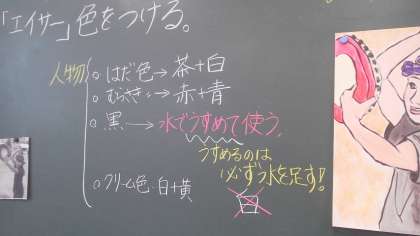 「エイサー」色をつける。
人物
○はだ色→茶+白
○むらさき→赤+青
○黒→水でうすめて使う。
うすめるのは
必ず水を足す!
○クリーム色…白+黄
白